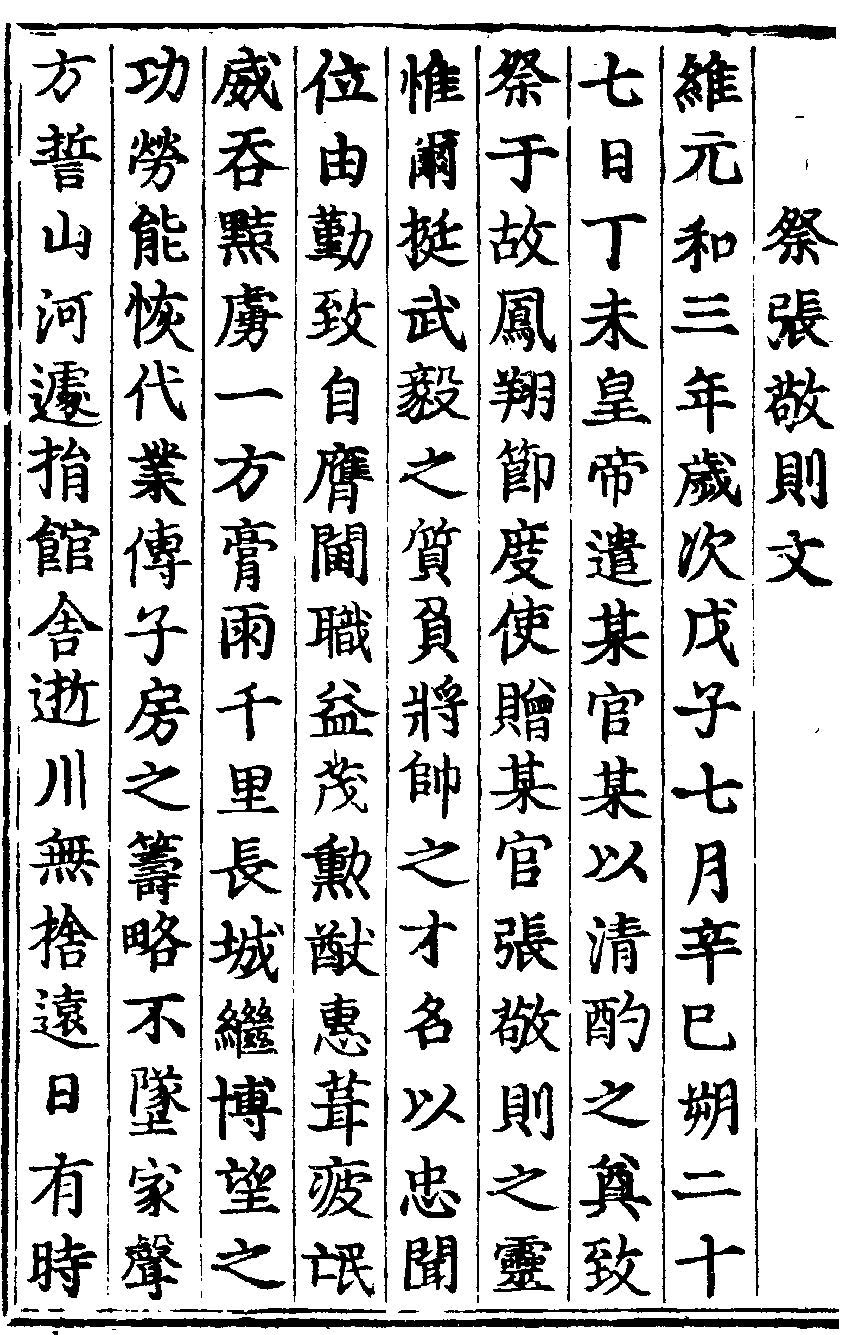 祭張敬則文
維元和三年歲次戊子七月辛巳朔二十
七日丁未皇帝遣某官某以清酌之奠致
祭于故鳳翔節度使贈某官張敬則之靈
惟爾挺武毅之質負將帥之才名以忠聞
位由勤致自膺閫職益茂勲猷惠葺疲甿
威吞黠虜一方膏雨千里長城繼博望之
功勞能恢代業傳子房之籌略不墜家聲
方誓山河遽捐館舎逝川無捨遠日有時